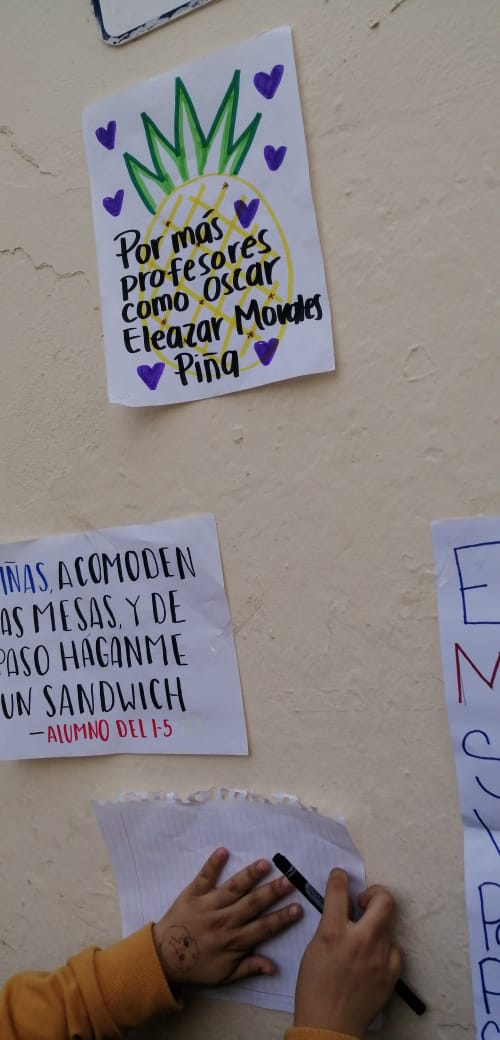 Por más
profesores
como Oscar
Eleazar Morales
Piña
IÑAS, ACOMODEN
AS MESAS, Y DE
PASO HÁGANME
UN SANDWICH
—ALUMNO DEL 1-5
E
M